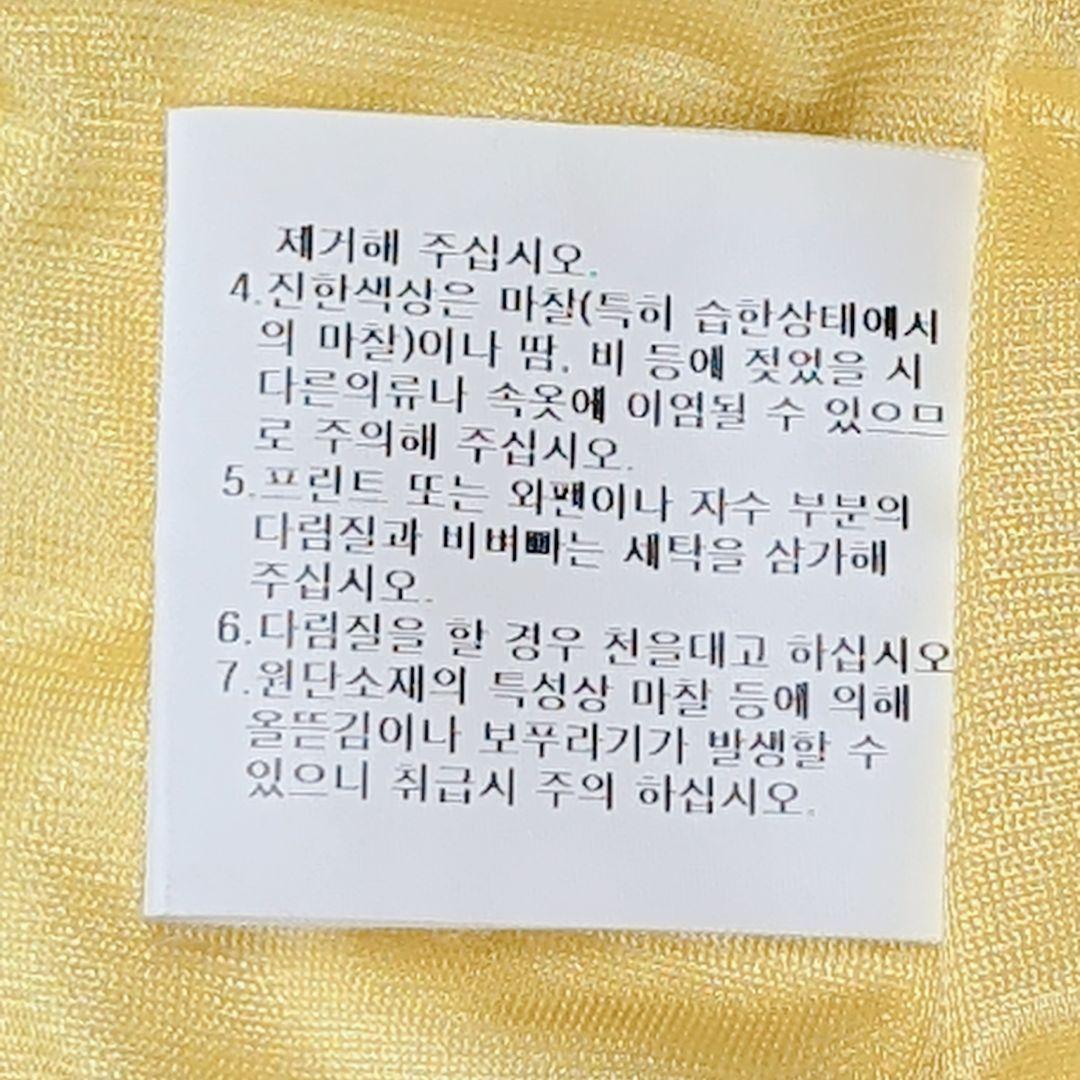 제거해 주십시오.
4.진한색상은 마찰(특히 습한상태에서
의 마찰)이나 땀, 비 등에 젖었을 시
다른의류나 속옷에 이염될 수 있으므
로 주의해 주십시오.
5.프린트 또는 와펜이나 자수 부분의
다림질과 비벼빠는 세탁을 삼가해
주십시오.
6.다림질을 할 경우 천을대고 하십시오
7.원단소재의 특성상 마찰 등에 의해
올뜯김이나 보푸라기가 발생할 수
있으니 취급시 주의 하십시오.